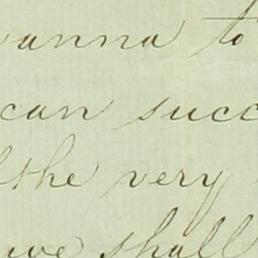 vanna to
can succ
the very
we shall